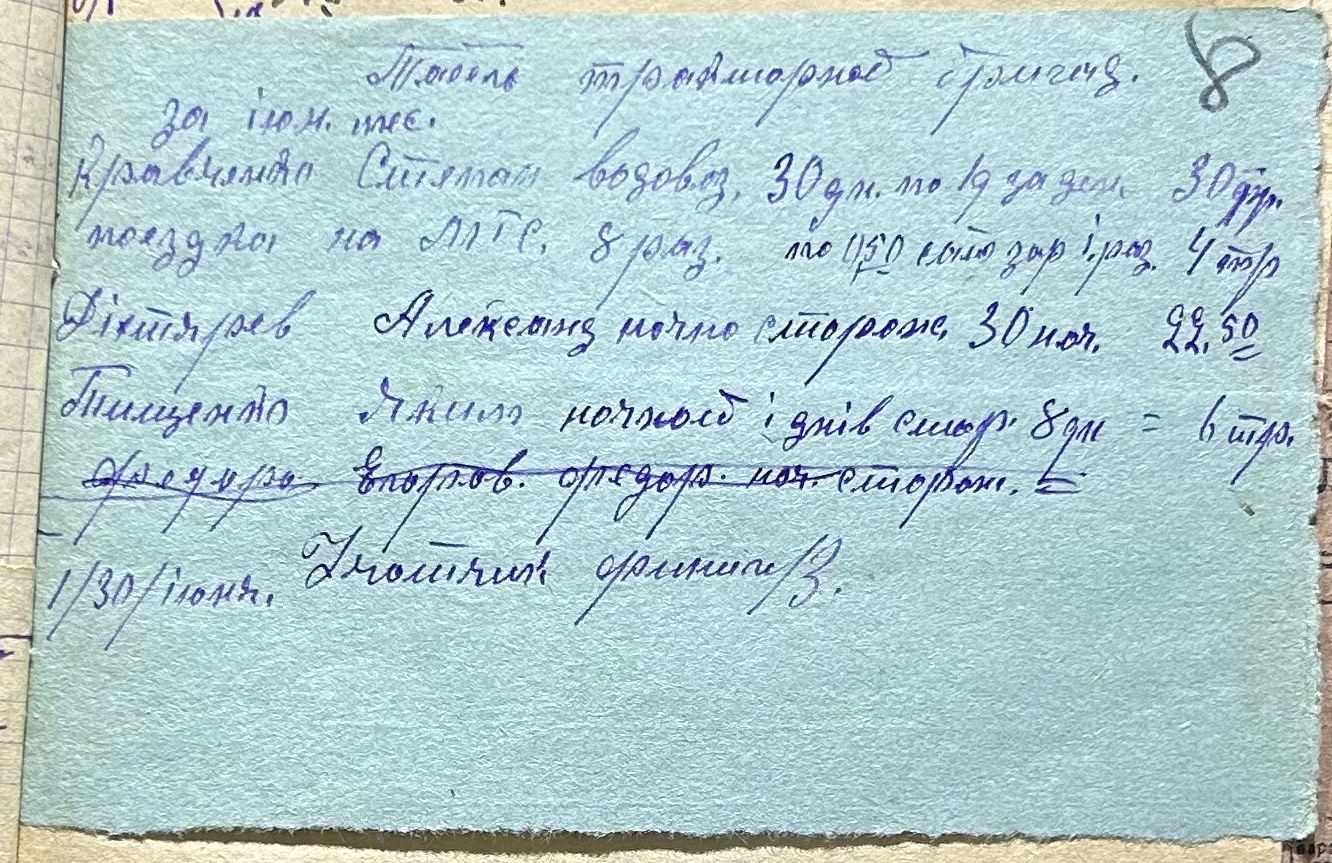 Табель тракторной бригад. 8
за іюн. мес.
Кравченко Степан водовоз. 30 дн. по 1д за ден. 30 тр.
поездка на МТС. 8 раз. по 0,50 1 раз. 4 тр
Діхтярев Александ ночно сторож. 30 ноч. 22.50
Тищенко Яким ночной і днів стор. 8 дн = 6 тр.
федора Егоров. федор. ноч. сторож. =
1/30/іюня. Учотчик